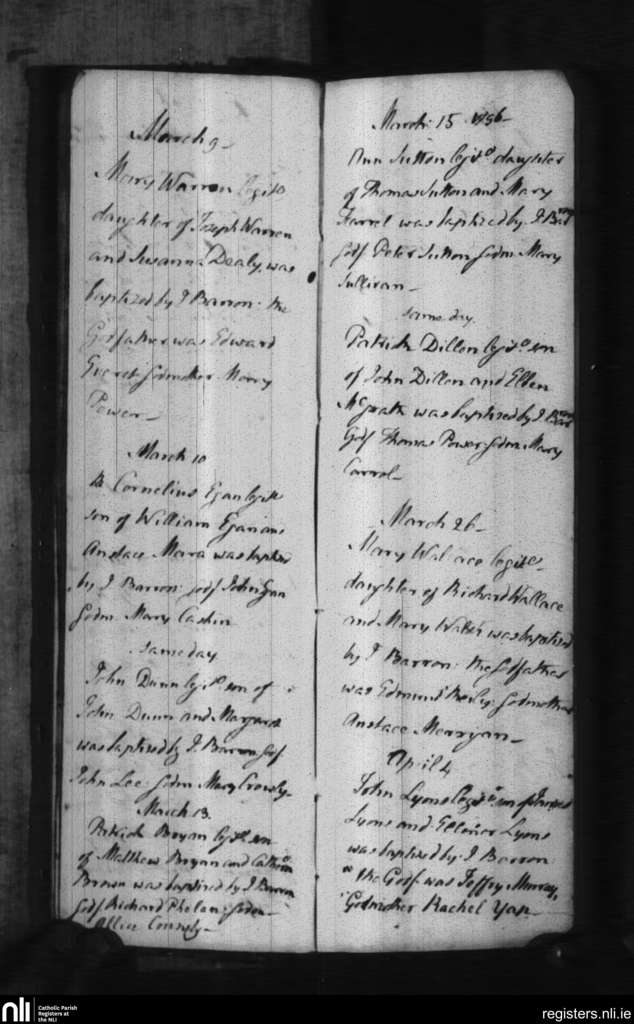 March 9
Mary Warren legite
daughter of Joseph Warren
and Susanna Dealy, was
baptized by J Barron: the
Godfather was Edward
Everet Godmother Mary
Power
March 10
Cornelius Egan legite
son of William Egan and
Anstace Meara was baptized
by J Barron: Godf John Egan
Godm: Mary Cashin
same day
John Dunn legite son of
John Dunn and Margaret
was baptized by J Barron Godf
John Lee: Godm: Mary Crowly
March 13.
Patrick Bryan legite son
of Matthew Bryan and Catherine
Brown was baptized by J Barron
Godf Richard Phelan: Godm
Allice Connoly
March: 15 1796
Ann Sutton legite daughter
of Thomas Sutton and Mary
Farrel was baptized by J Barron
Godf Peter Sutton Godm: Mary
Sullivan
same day
Patrick Dillon legite son
of John Dillon and Ellen
McGrath was baptized by J Barron
Godf Thomas Power: Godm: Mary
Carrol
March 26
Mary Wallace legite
daughter of Richard Wallace
and Mary Walsh was baptized
by J Barron: the Godfather
was Edmund Godmother
Anstace Merrgan
April 4
John Lyons legite son of James
Lyons and Elloner Lyons
was baptised by J Barron
the Godf was Jeffry Murray,
Godmother Rachel Yap
nli Catholic Parish
Registers at
the NLI
registers.nli.ie